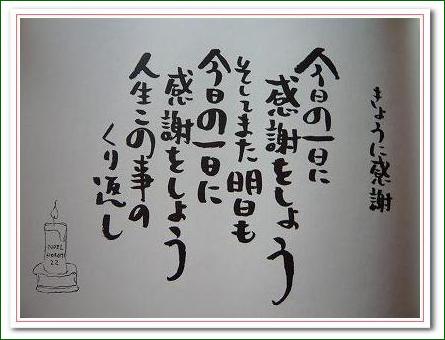 きょうに感謝
今日の一日に
感謝をしよう
そしてまた明日も
今日の一日に
感謝をしよう
人生この事の
くり返し
NOEL
22